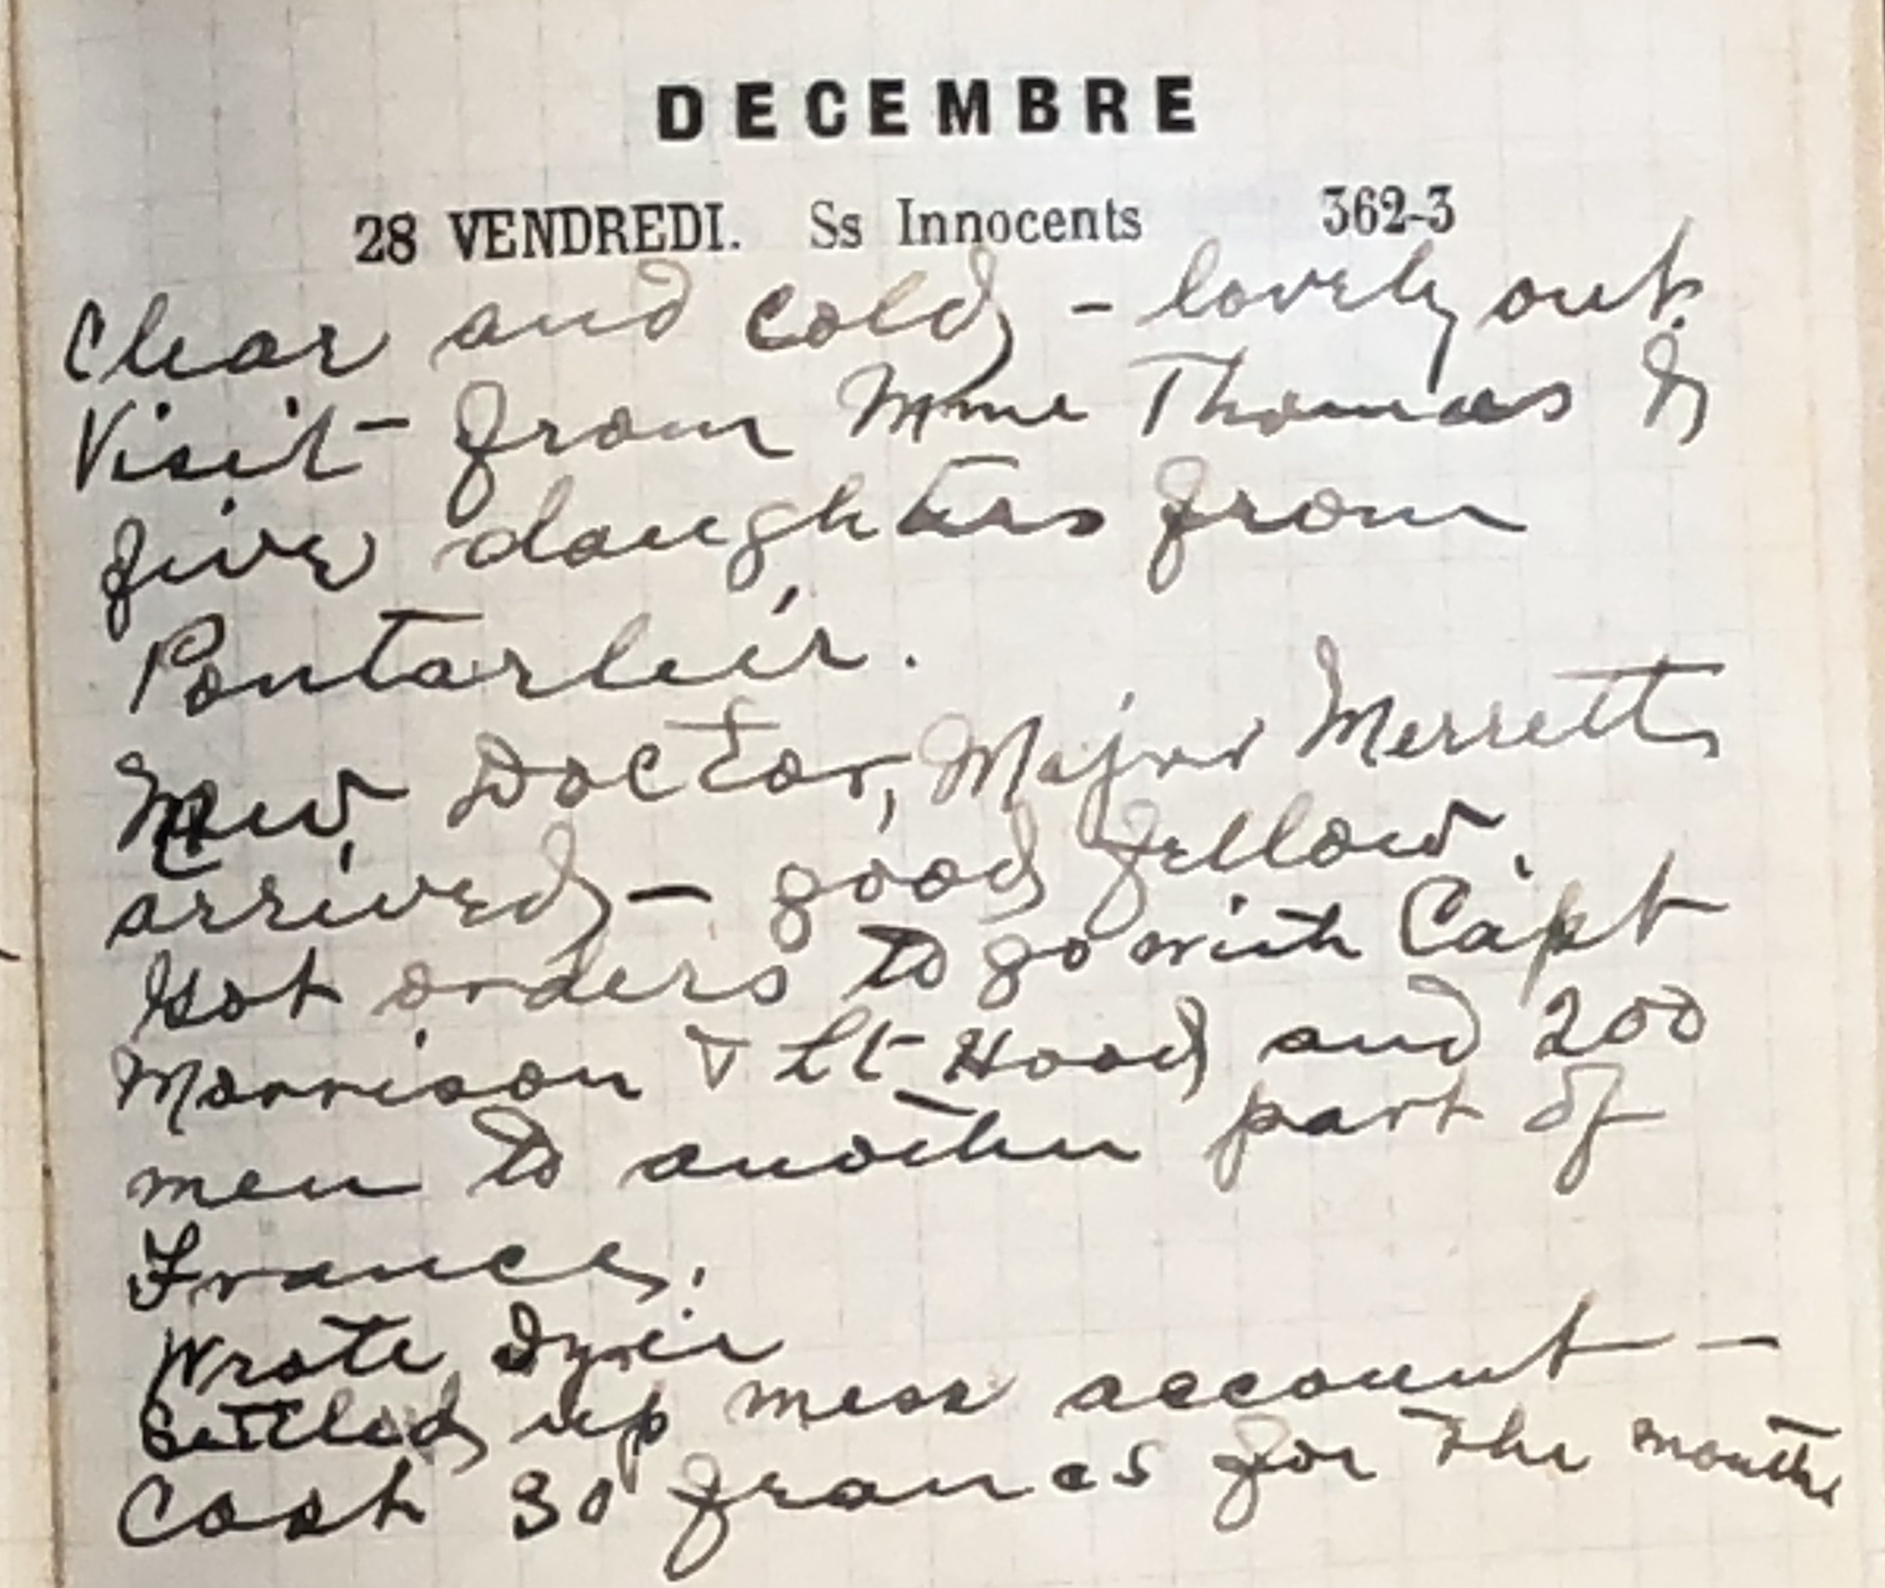 DECEMBRE
28 VENDREDI. Ss Innocents 362-3
Clear and cold - lovely out.
Visit from Mme Thomas &
five daughters from
Pontarleir.
New Doctor, Major Merrett
arrived - good fellow.
Got orders to go with Capt
Morrison & Lt Hood and 200
men to another part of
France.
Wrote
Settled up mess account -
Cost 30 francs for the month